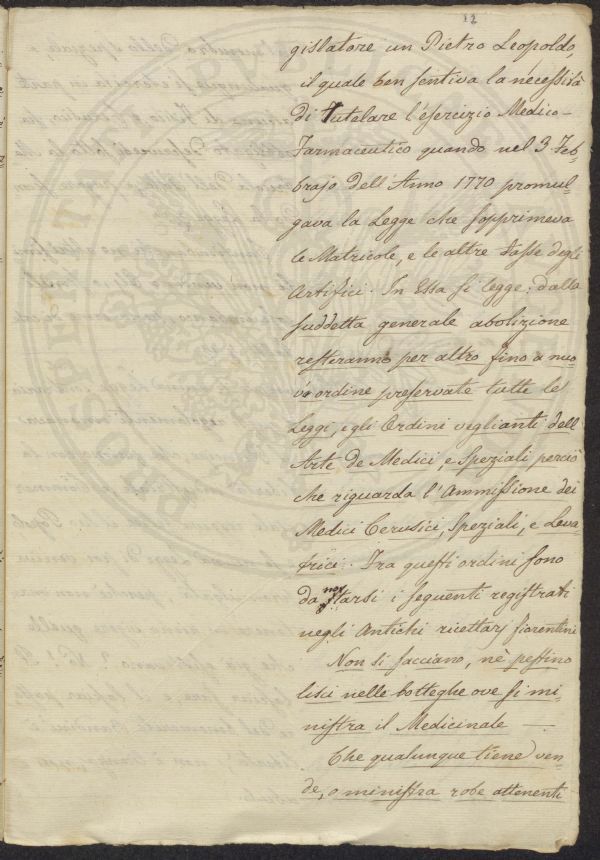 12
gislatore un Pietro Leopoldo,
il quale ben sentiva la necessità
di Tutelare l'esercizio Medico-
Farmaceutico quando nel 3 Feb-
brajo dell'Anno 1770 promul-
gava la Legge che sopprimeva
le Matricole, e le altre Tasse degli
Artifici. In Essa si legge: dalla
suddetta generale abolizione
resteranno per altro fino a nuo
vo ordine preservate tutte le
Leggi, e gli Ordini veglianti dell
Arte de Medici, e Speziali perciò
che riguarda l'Ammissione dei
Medici Cerusici, Speziali, e Leva
trici. Tra questi ordini sono
da notarsi i seguenti registrati
negli Antichi ricettarj fiorentini
Non si facciano, nè pestino
lisci nelle botteghe ove si mi-
nistra il Medicinale
Che qualunque tiene ven-
de, o ministra robe attenenti